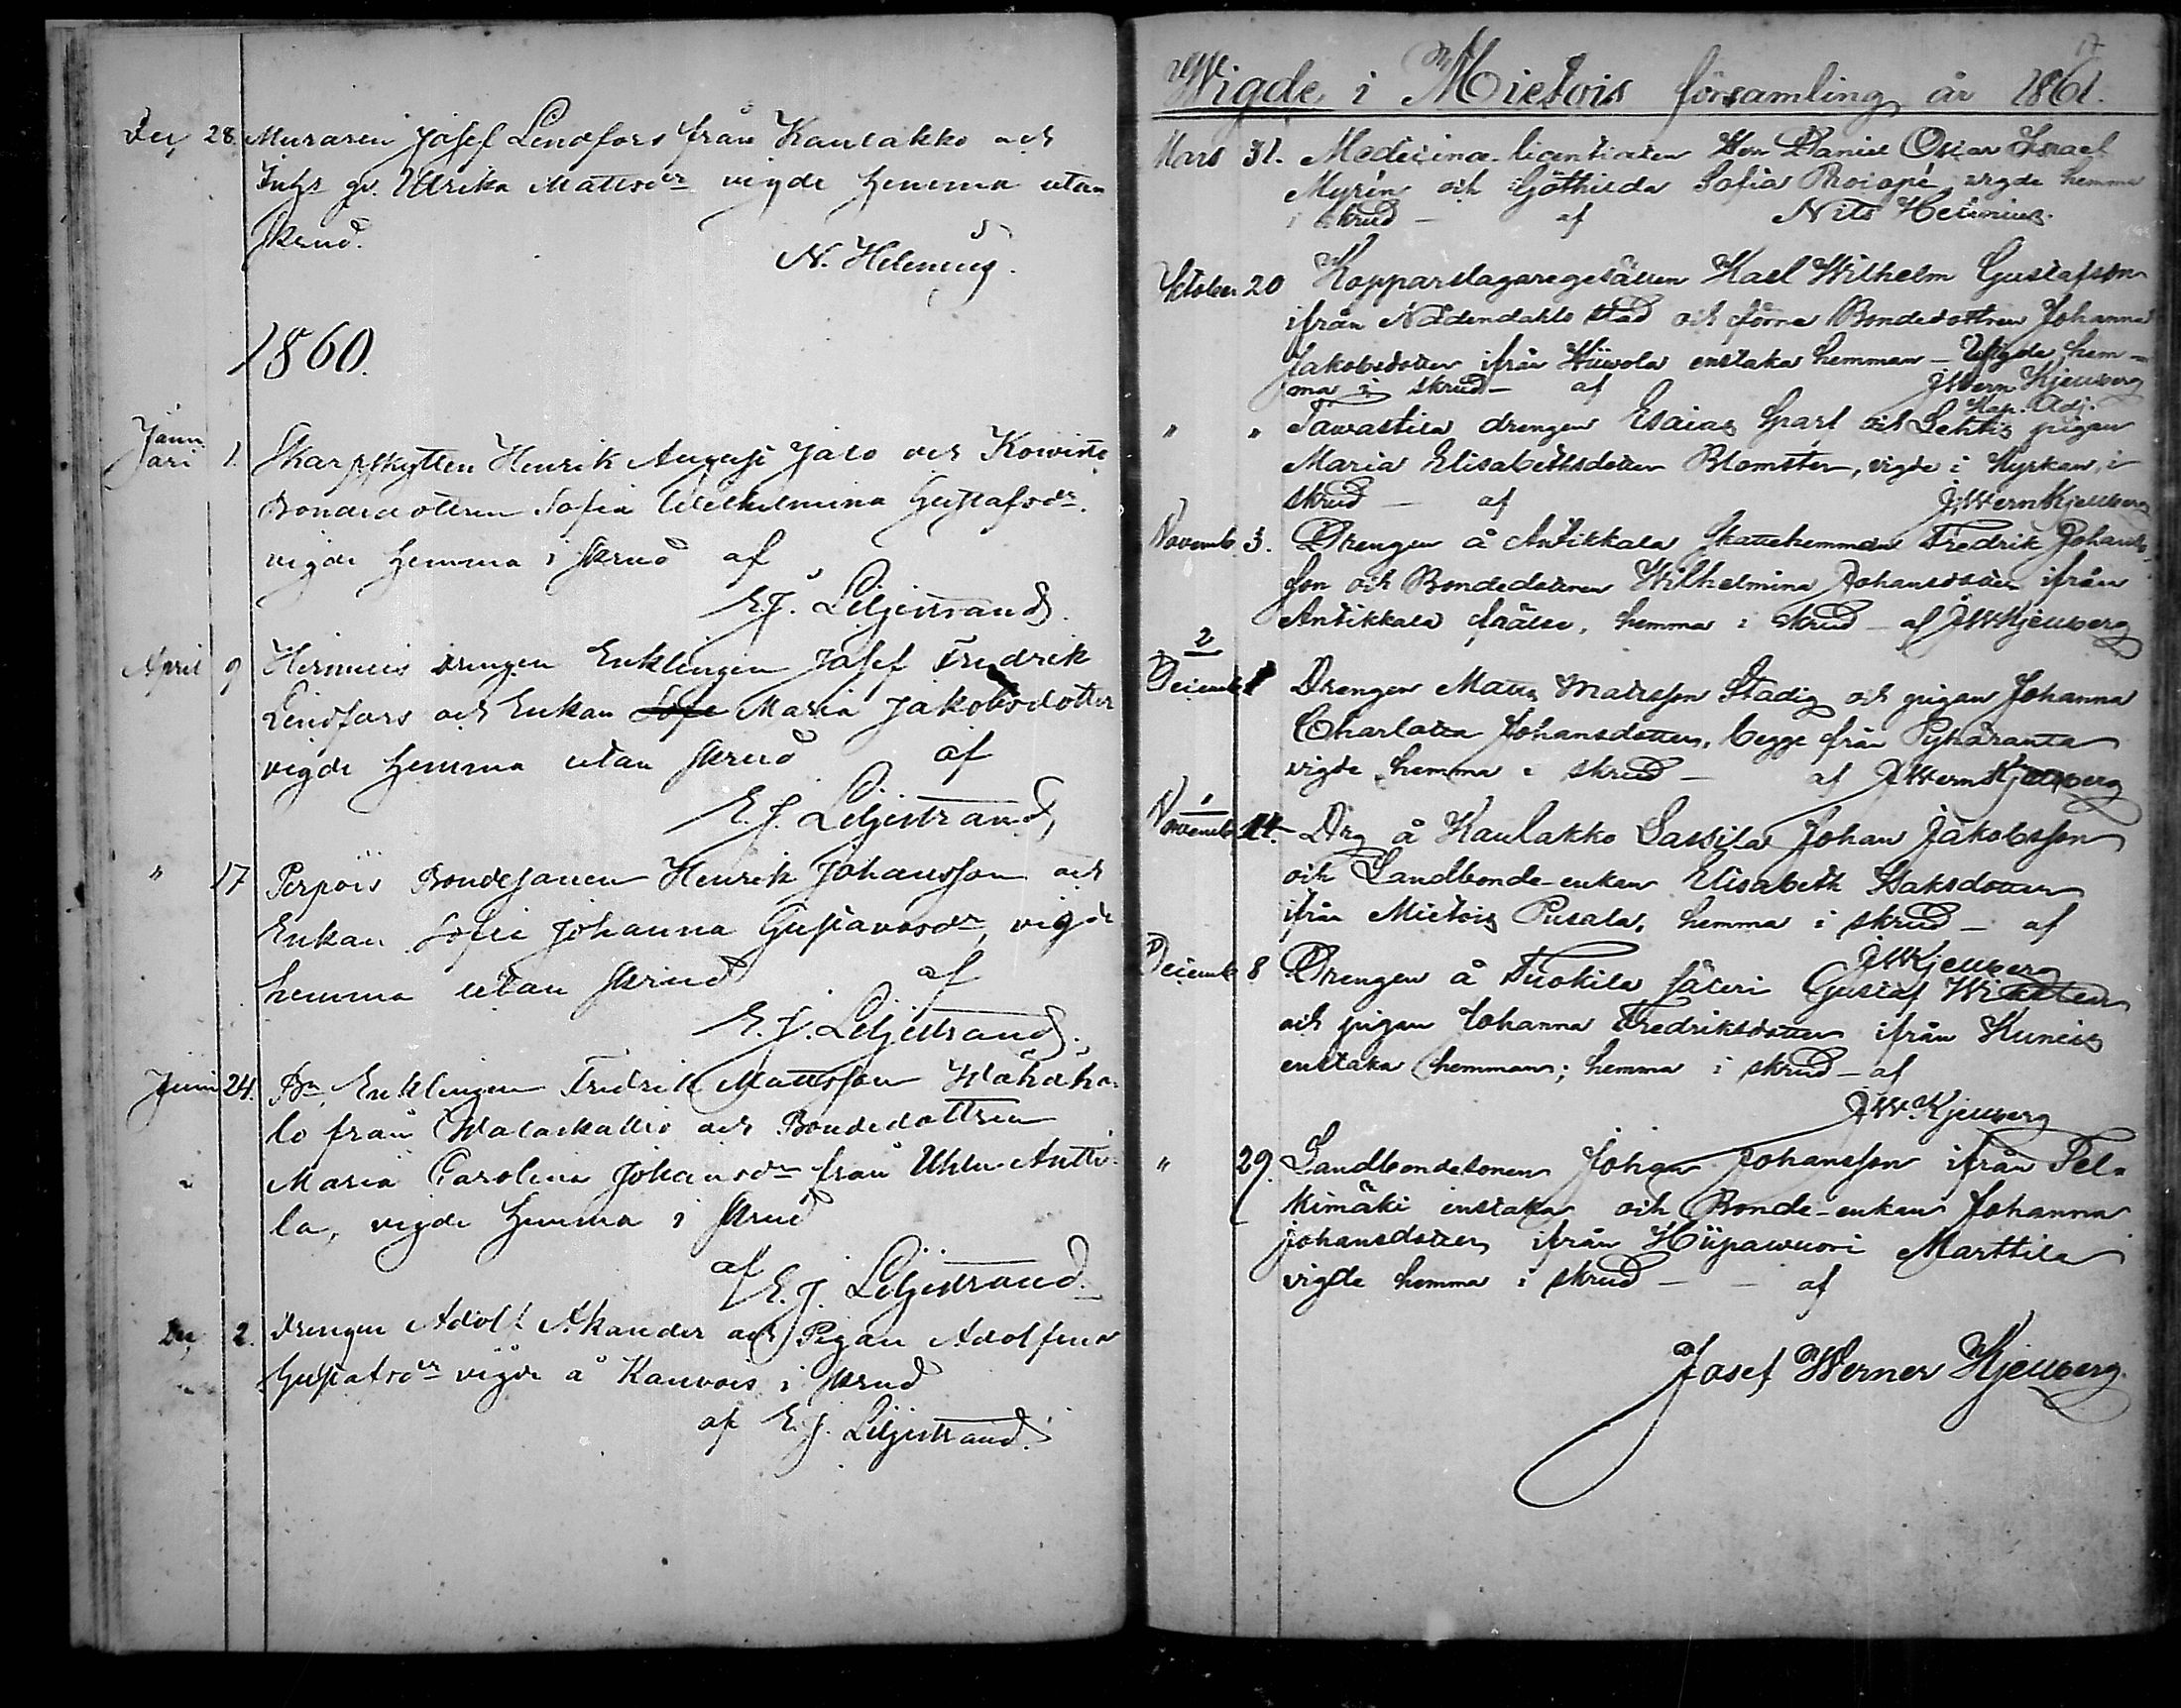 Dec 28. Muraren Josef Lindfors från Kaulakko och
Inhs gv. Ulrika Mattsdr vigde hemma utan
skrud.
N. Helenius.
1860.
Janu
ari 1. Skarpskytten Henrik August Jalo och Koivisto
Bondedottren Sofia Wilhelmina Gustafsdr.
vigde hemma i skrud af
E. J. Liljestrand.
April 9 Hirmuis drengen Enklingen Josef Fredrik
Lindfors och Enkan Sofi Maria Jakobsdotter
vigde hemma utan skrud af
E. J. Liljestrand,
" 17 Perpois Bondesonen Henrik Johansson och
Enkan Sofia Johanna Gustavsdr, vigde
hemma utan skrud af
E. J. Liljestrand.
Juni 24. Bn Enklingen Fredrik Mattsson Wähäha-
lo från Walaskallio och Bondedottren
Maria Carolina Johansdr från Uhlu-Antti-
la, vigde hemma i skrud
af E. J. Liljestrand.
Dec 2. Drengen Adolf Akander och Pigan Adolfina
Gustafsdr vigde å Kauvois i skrud
af E. J. Liljestrand.
17
Wigde i Mietois församling år 1861.
Mars 31. Medicinæ-licentiaten Herr Daniel Oscar Israel
Myrén och Göthilda Sofia Procopé, vigde hemma
i skrud — af Nils Helenius.
October 20 Kopparslagaregesällen Karl Wilhelm Gustafson
ifrån Nådendahls stad och förra Bondedottren Johanna
Jakobsdotter ifrån Hiivola enstaka hemman — Wigde hem-
ma i skrud — af J Wern Kjellberg
Kap. Adj.
" " Tawastila drengen Esaias Sparf och Lehtis pigan
Maria Elisabethsdotter Blomster, vigde i Kyrkan, i
skrud — af J. Wern Kjellberg
Novemb. 3. Drengen å Antikkala Skattehemman Fredrik Johans-
son och Bondedottren Wilhelmina Johansdotter ifrån
Antikkala frälse, hemma i skrud — af J W Kjellberg
2
Decemb. 1 Drengen Matts Mattsson Stadig och pigan Johanna
Charlotta Johansdotter, begge från Pyhäranta
vigde hemma i skrud — af J Wern Kjellberg
1
Novemb. 14. Drg å Kaulakko Sassila Johan Jakobsson
och Landbonde-enkan Elisabeth Isaksdotter
ifrån Mietois Pusala, hemma i skrud — af
J W Kjellberg
Decemb 8 Drengen å Tuokila säteri Gustaf Wikstén
och pigan Johanna Fredriksdotter ifrån Kuncis
enstaka hemman; hemma i skrud — af
J. W. Kjellberg
" 29. Landbondesonen Johan Johansson ifrån Pel-
kimäki enstaka och Bonde-enkan Johanna
Johansdotter, ifrån Hiipawuori Marttila
vigde hemma i skrud — — af
Josef Werner Kjellberg.